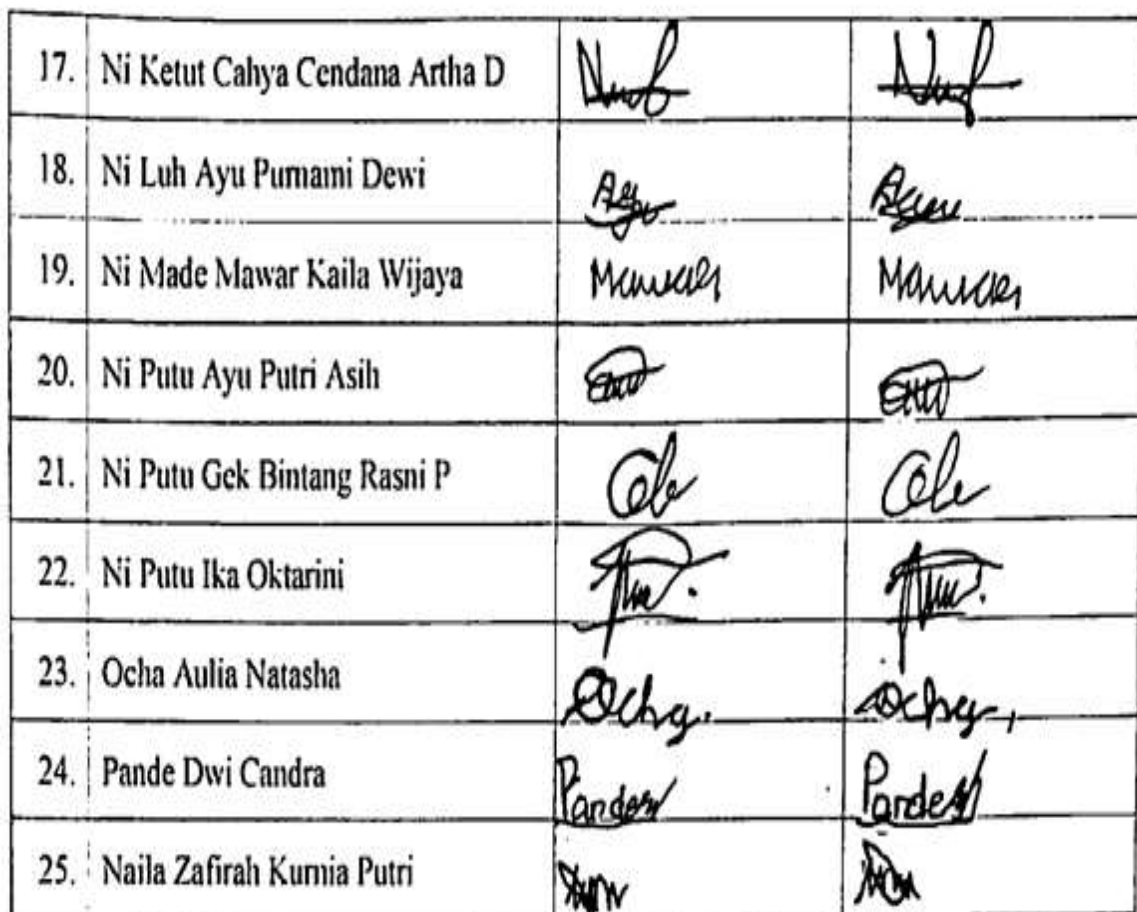 17. Ni Ketut Cahya Cendana Artha D
18. Ni Luh Ayu Purnami Dewi Ayu
19. Ni Made Mawar Kaila Wijaya Mawar Mawar
20. Ni Putu Ayu Putri Asih
21. Ni Putu Gek Bintang Rasni P
22. Ni Putu Ika Oktarini
23. Ocha Aulia Natasha Ocha. Ocha
24. Pande Dwi Candra Pande Pande
25. Naila Zafirah Kurnia Putri